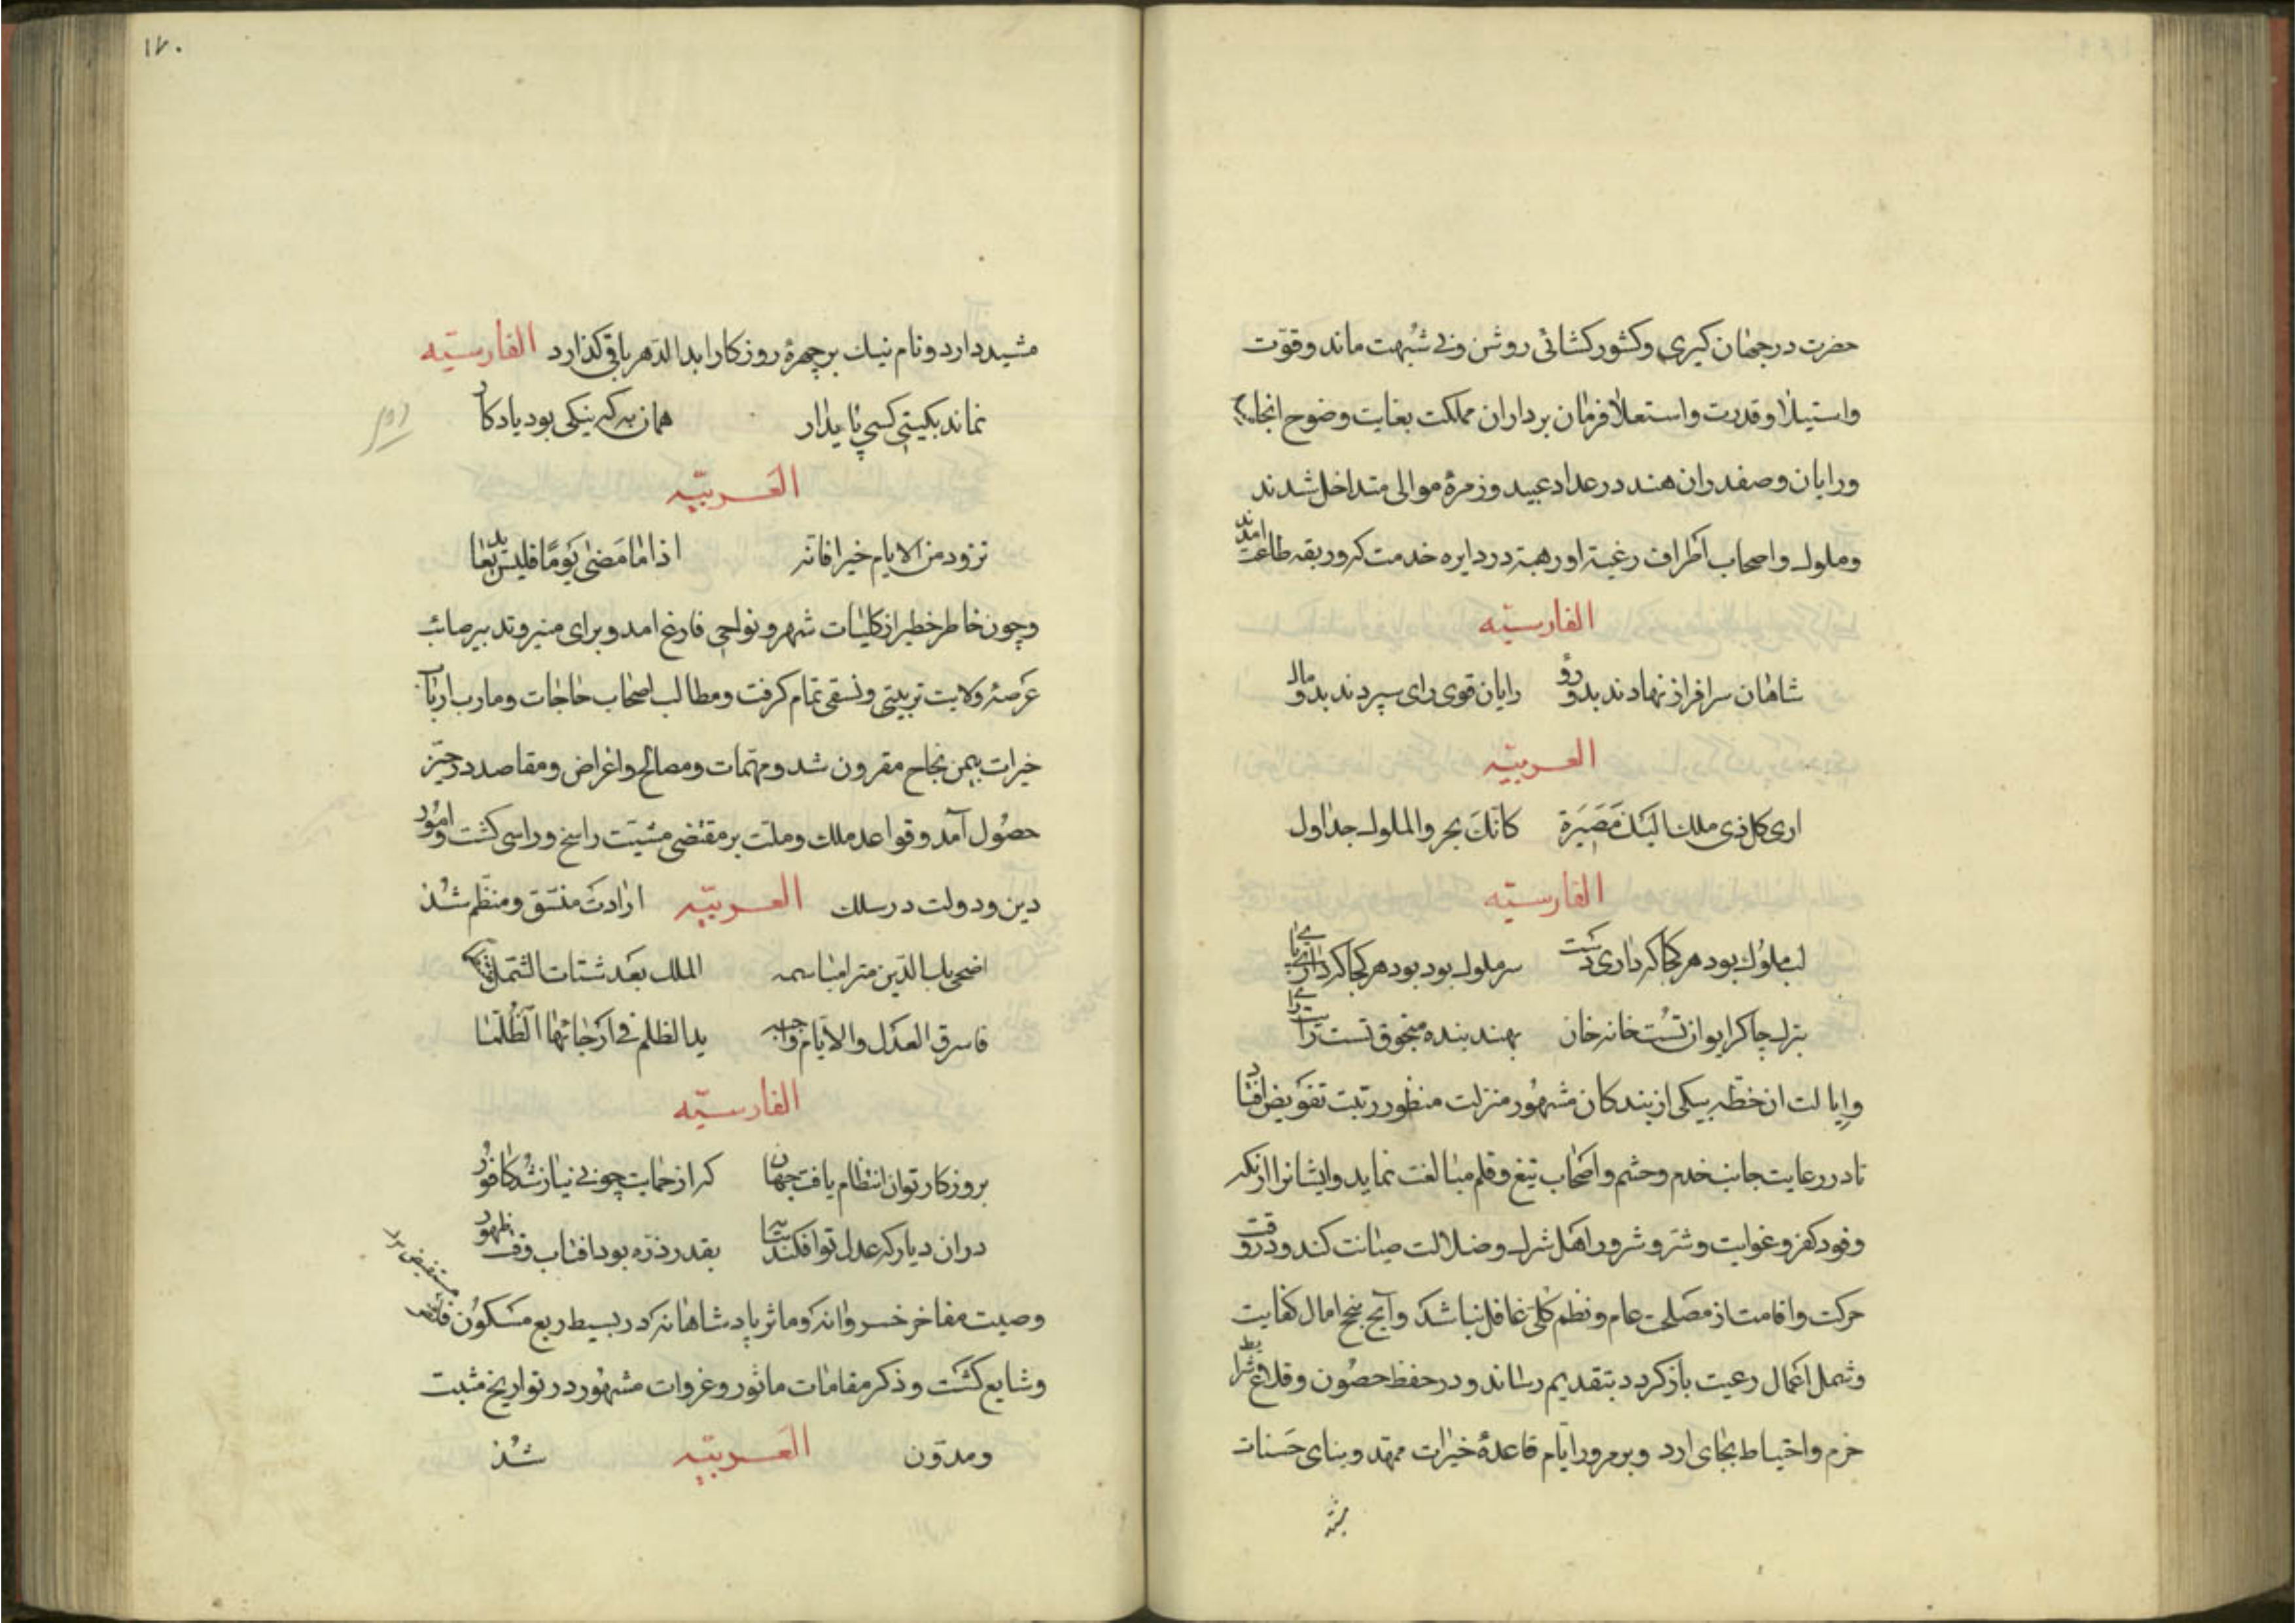 حضرت در جهان کیری وکشور کشائی روشن وبی شبهت ماند وقوّت
واستیلا وقدرت واستعلا فرمان برداران مملکت بغایت وضوح
ورایان وصفدران هند در عداد عبید وزمرۀ موالی متداخل شدند
وملوک واصحاب اطراف رغبة اورهبة در دایره خدمت که وربقه طاعت امدند
الفارسیّه
شاهان سرافراز نهادند بدو روُ رایان قوی رای سپردند بدو مال
العربیّه
اری کل ذی ملک الیک مَصَیَرَة کانّکَ بحر والملوک جداول
الفارسیّه
لب ملوک بود هر کجا که داری دست سر ملوک بود بود هر کجا که داری پای
بترک چاکر ایوان تست خانه خان بهند بنده منجوق تست رایت رای
وایالت ان خطّه بیکی از بندکان مشهور منزلت منظور رتبت تفویض افتاد
تا در رعایت جانب خدم وحشم واصحاب تیغ وقلم مبالغت نماید وایشانرا از نکه
وفود کفر وغوایت وشرّ وشرور اهل شرک وضلالت صیانت کند ودر وقت
حرکت واقامت از مصلحت عام ونظم کلّی غافل نباشد وآنچ بنجح امال کفایت
وشمل اعمال رعیت باز کردد بتقدیم رساند ودر حفظ حصون وقلاع شرایط
حزم واحتیاط بجای ارد وبر مرور ایّام قاعدۀ خیرات ممهّد وبنای حسنات
مشید
۱۷۰
مشید دارد ونام نیک بر چهرۀ روزکار ابدا الدّهر باقی کذارد الفارسیّه
نماند بکیتی کسی پایدار همان به که نیکی بود یادکار
العربیّه
تزود من الایام خیرا فانّه اذا ما مَضیٰ یَومًا فلیس بعاید
وچون خاطر خطیر از کلیّات شهر ونواحی فارغ امد وبرای منیر وتدبیر صائب
عَرصهٔ ولایت تربیتی ونسقی تمام کرفت ومطالب اصحاب حاجات ومارب ارباب
خیرات بیمن نجاح مقرون شد ومهمّات ومصالح واغراض ومقاصد در حیّز
حصول آمد وقواعد ملک وملّت بر مقتضی مشیّت راسخ وراسی کشت وامور
دین ودولت در سلک العربیّه ارادت متّسق ومنتظم شُذ
اضحی بک الدّین مترا مبا سمه الملک بَعَد شتات الشّمل
فاسرق العدَل والایّام واجبه یدالظلم فی ارَجائها الظُلَما
الفارسیّه
بروزکار توان انتظام یافت جهان که از حمایت چو بی نیاز شُد کافور
دران دیار که عدل توافکند سایه بقدر ذرّه بود افتاب وقف ظهور
وصیت مفاخر خسروانه که وماثر پادشاهانه که در بسیط ربع مَسکوُن
وشایع کشت وذکر مقامات ماثور وغزوات مشهور در تواریخ مثبت
ومدوّن العربیّه شُذ